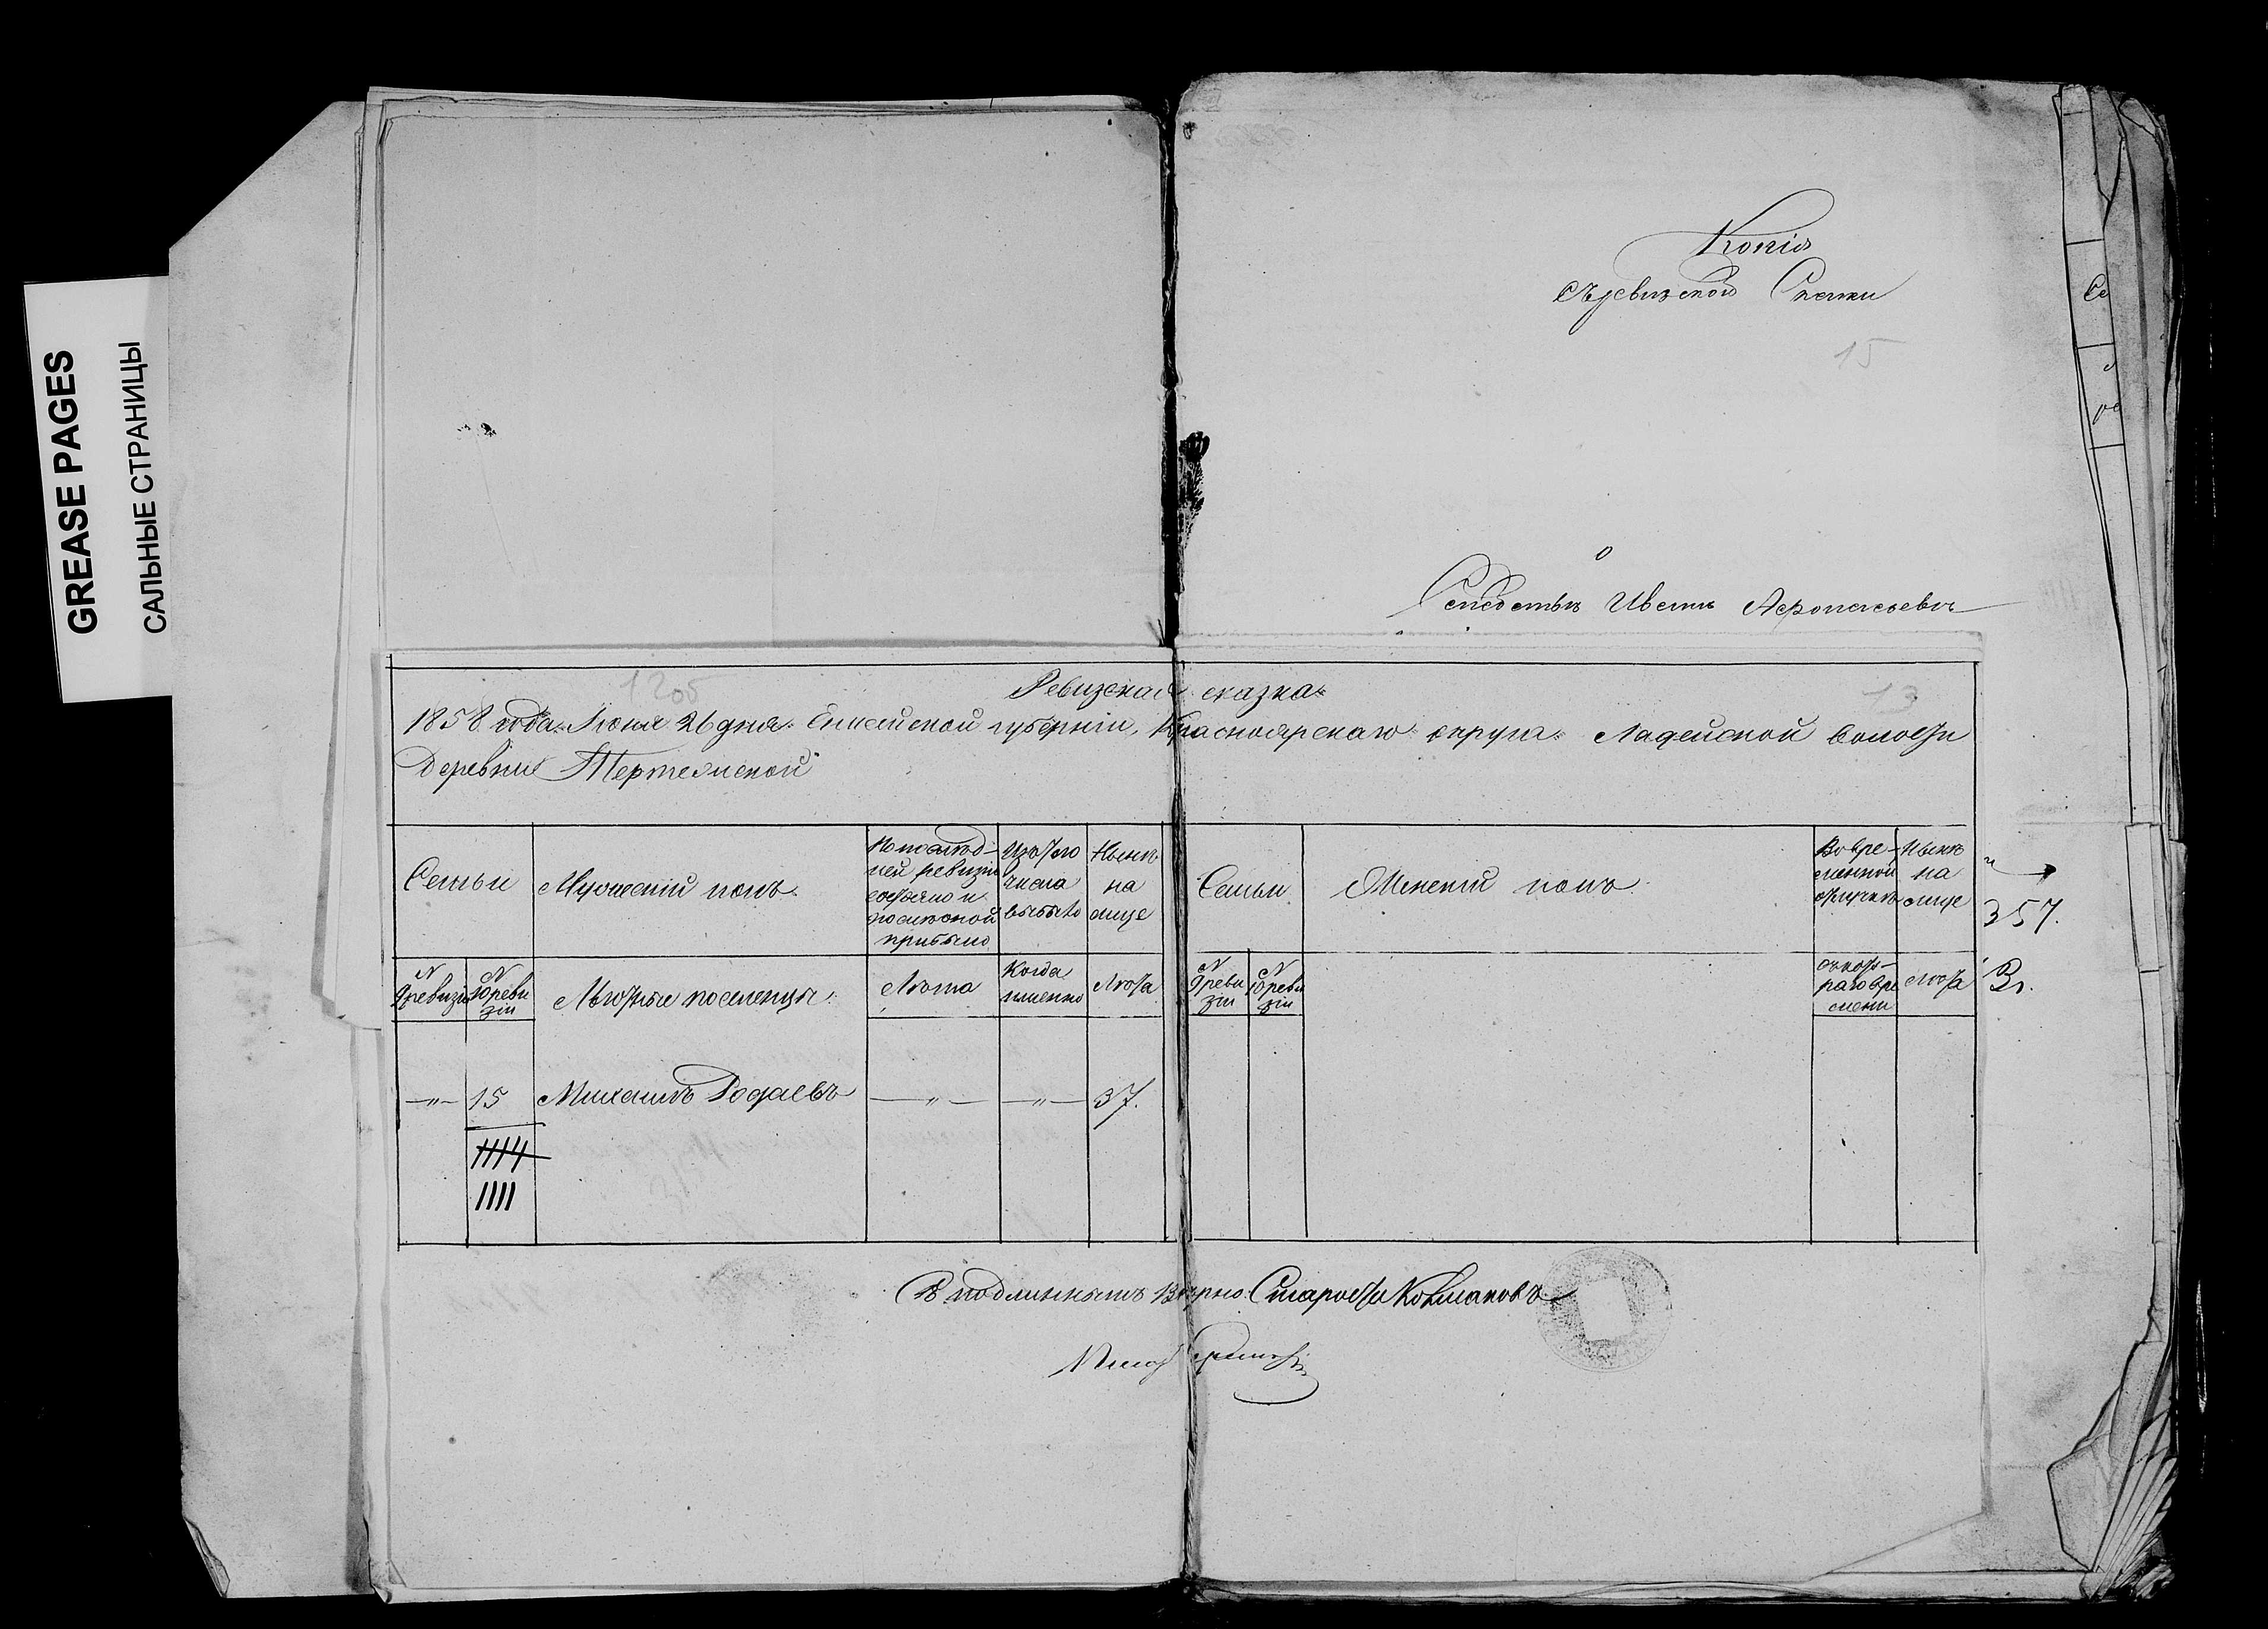 GREASE PAGES
САЛЬНЫЕ СТРАНИЦЫ
Копія
съ ревизской Скаски
15
о
Иванъ
1205
13
Ревизская сказка
1858 года Июня 26 дня Енисейской губерніи, Красноярскаго округа Ладейской волости
Деревни Тертежской
Семьи
Мужескій полъ
По послѣд-
ней ревизіи
состояло и
после оной
прибыло
Изъ того
числа
выбыло
Нынѣ
на
лице
Семьи
Женскій полъ
Во вре-
менной
отлучкѣ
Нынѣ
на
лице
357.
N
9 ревизіи
N
10 реви
зіи
Льготные поселенцы
Лѣта
Когда
именно
Лѣта
N
9 реви
зіи
N
10 реви
зіи
съ кото-
раго вре
мени
Лѣта
—„— 15 Михаилъ Родаевъ —„— —„— 37.
Съ подлиннымъ Вѣрно: Староста Колмаковъ